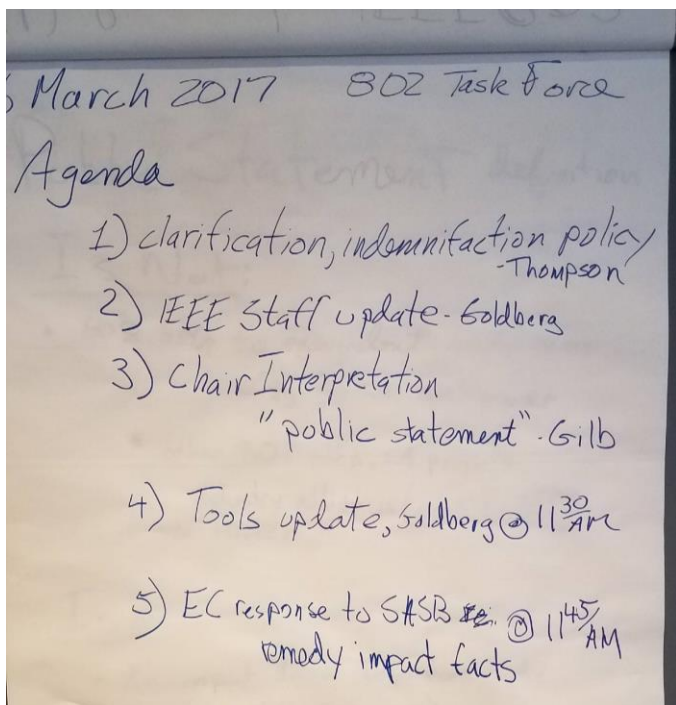 March 2017 802 Task Force
Agenda
1) clarification, indemnifaction policy
-Thompson
2) IEEE Staff update - Goldberg
3) Chair Interpretation
"public statement" - Gilb
4) Tools update, Goldberg @ 11 30 AM
5) EC response to SASB re: @ 11 45 AM
remedy impact facts